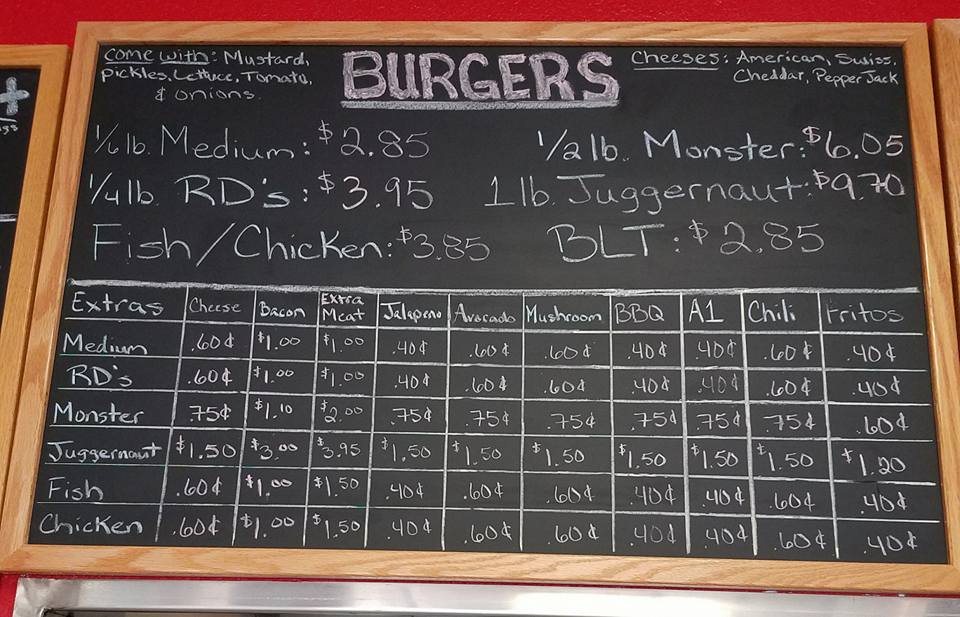 come with: Mustard,
Pickles, Lettuce, Tomato,
& onions.
BURGERS
Cheeses: American, Swiss,
Cheddar, Pepper Jack
1/6 lb. Medium: $2.85
1/2 lb. Monster: $6.05
1/4 lb. RD's: $3.95
1 lb. Juggernaut: $9.70
Fish/Chicken: $3.85
BLT: $2.85
Extras Cheese Bacon Extra Meat Jalapeno Avocado Mushroom BBQ A1 Chili Fritos
Medium .60¢ $1.00 $1.00 .40¢ .60¢ .60¢ .40¢ .40¢ .60¢ .40¢
RD's .60¢ $1.00 $1.00 .40¢ .60¢ .60¢ .40¢ .40¢ .60¢ .40¢
Monster .75¢ $1.10 $2.00 .75¢ .75¢ .75¢ .75¢ .75¢ .75¢ .60¢
Juggernaut $1.50 $3.00 $3.95 $1.50 $1.50 $1.50 $1.50 $1.50 $1.50 $1.20
Fish .60¢ $1.00 $1.50 .40¢ .60¢ .60¢ .40¢ .40¢ .60¢ .40¢
Chicken .60¢ $1.00 $1.50 .40¢ .60¢ .60¢ .40¢ .40¢ .60¢ .40¢